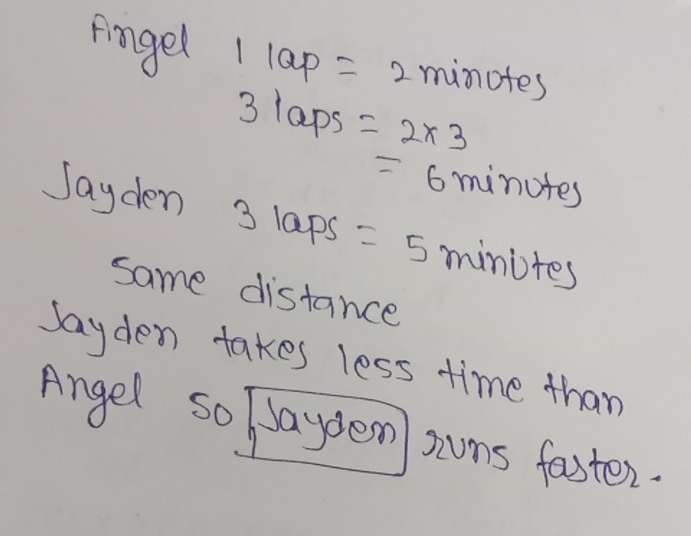 Angel 1 lap = 2 minutes
3 laps = 2x3
= 6 minutes
Jayden 3 laps = 5 minutes
Same distance
Jayden takes less time than
Angel so Jayden runs faster.